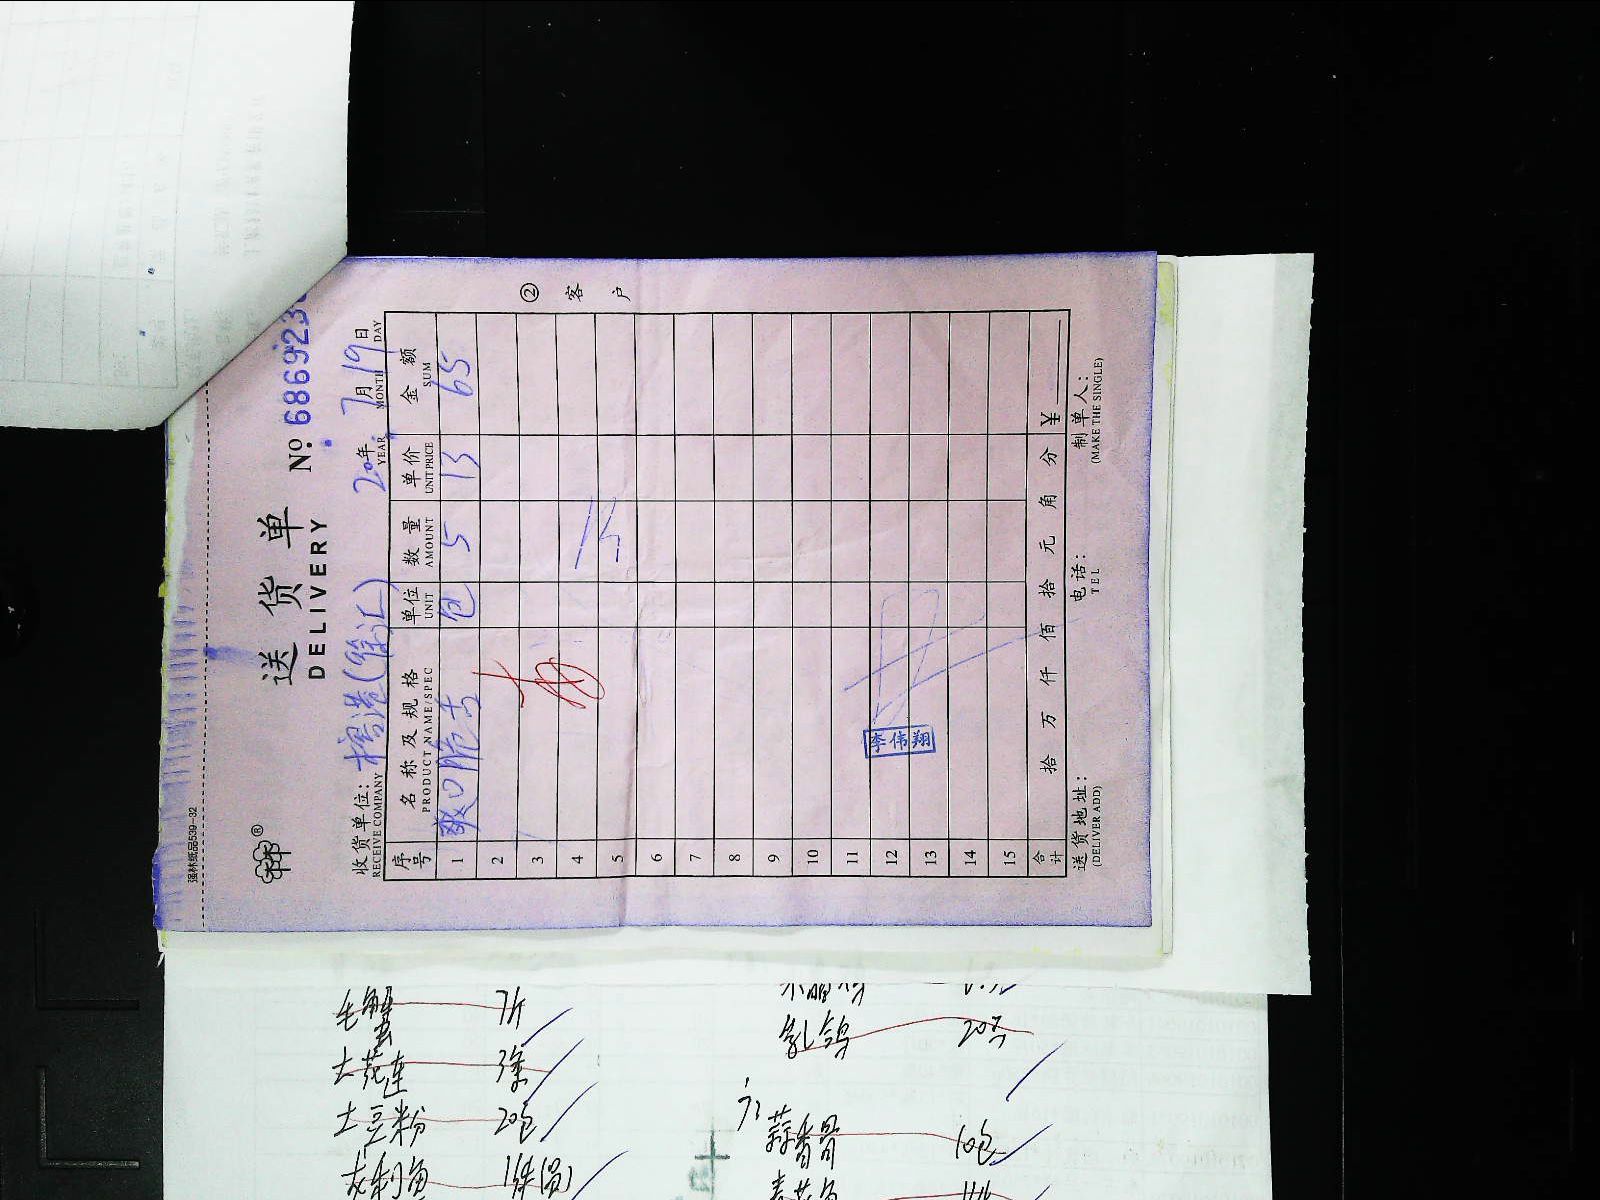 强林纸品539-32
送货单
DELIVERY
No. 686923
收货单位: 榕港(徐汇) 20 年 7 月 19 日
RECEIVE COMPANY YEAR MONTH DAY
② 客户
序号 名称及规格 单位 数量 单价 金额
PRODUCT NAME/SPEC UNIT AMOUNT UNIT PRICE SUM
1 爽口脆舌 包 5 13 65
2
3
4
5
6
7
8
9
10
11
12
13
14
15
李伟翔
合计 拾 万 仟 佰 拾 元 角 分 ¥
送货地址: 电话: 制单人:
(DELIVER ADD) TEL (MAKE THE SINGLE)
毛蟹 7斤
大花连 3条
土豆粉 20包
乳鸽 20只
蒜香骨 10包